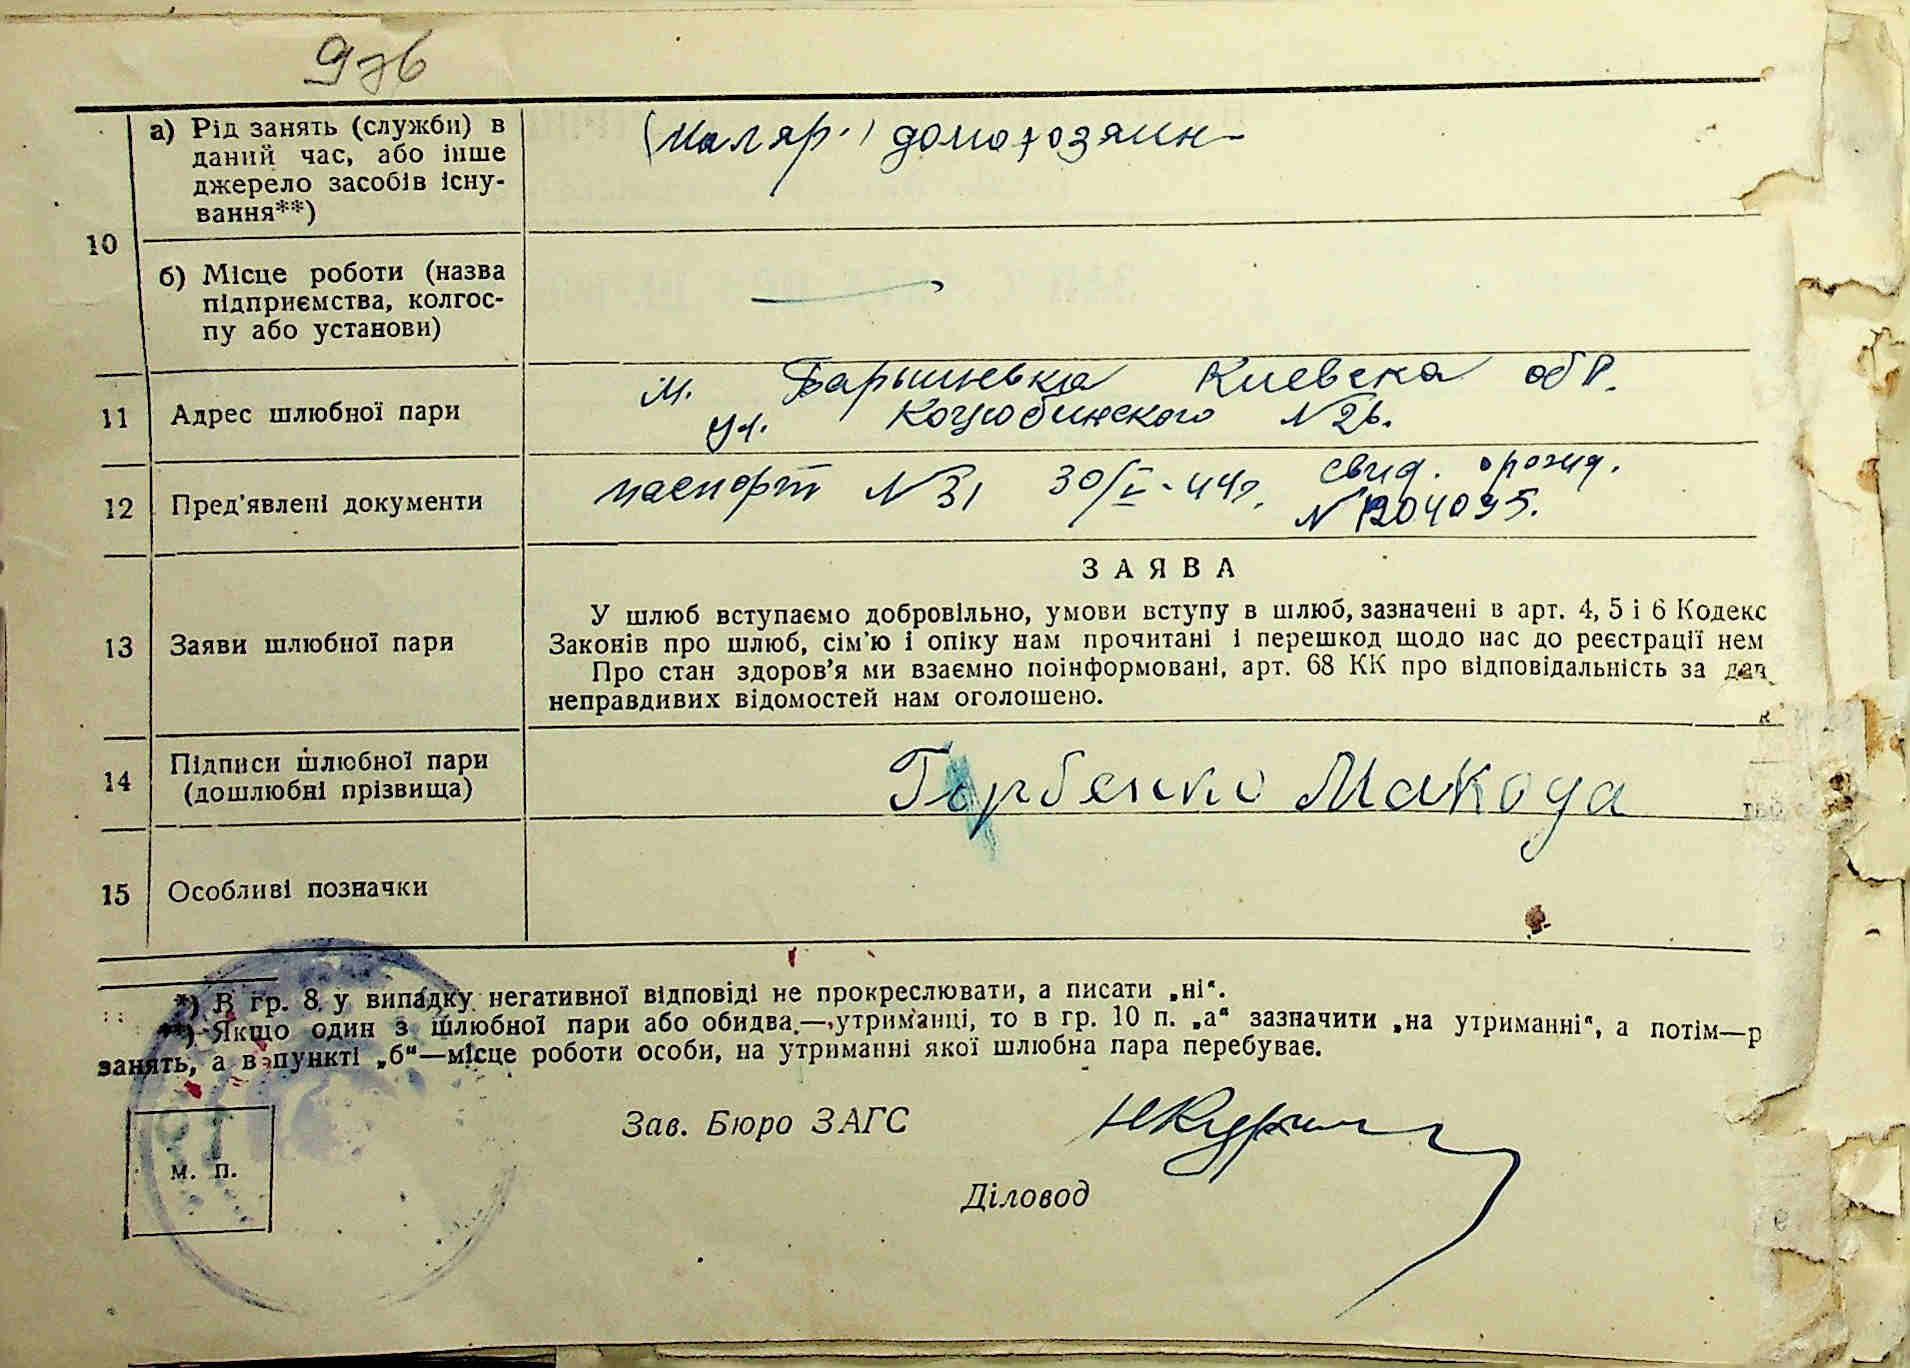 а) Рід занять (службн) в
даний час, або інше
джерело засобів існу-
вання**)
(маляр.) домохозяин
10
б) Місце роботи (назва
підприємства, колгос-
пу або установи)
11
Адрес шлюбної пари
м. Барышевка Киевска обл.
ул. Коцюбинского №26.
12
Пред'явлені документи
паспорт №31 30/V-44г. свид. о рожд.
№1204095.
13
Заяви шлюбної пари
ЗАЯВА
У шлюб вступаємо добровільно, умови вступу в шлюб, зазначені в арт. 4, 5 і 6 Кодекс
Законів про шлюб, сім'ю і опіку нам прочитані і перешкод щодо нас до реєстрації нем
Про стан здоров'я ми взаємно поінформовані, арт. 68 КК про відповідальність за
неправдивих відомостей нам оголошено.
14
Підписи шлюбної пари
(дошлюбні прізвища)
Горбенко Макода
15
Особливі позначки
*) В гр. 8 у випадку негативної відповіді не прокреслювати, а писати „ні“.
**) Якщо один з шлюбної пари або обидва — утриманці, то в гр. 10 п. „а“ зазначити „на утриманні“, а потім—р
занять, а в пункті „б“—місце роботи особи, на утриманні якої шлюбна пара перебуває.
Зав. Бюро ЗАГС
м. п.
Діловод